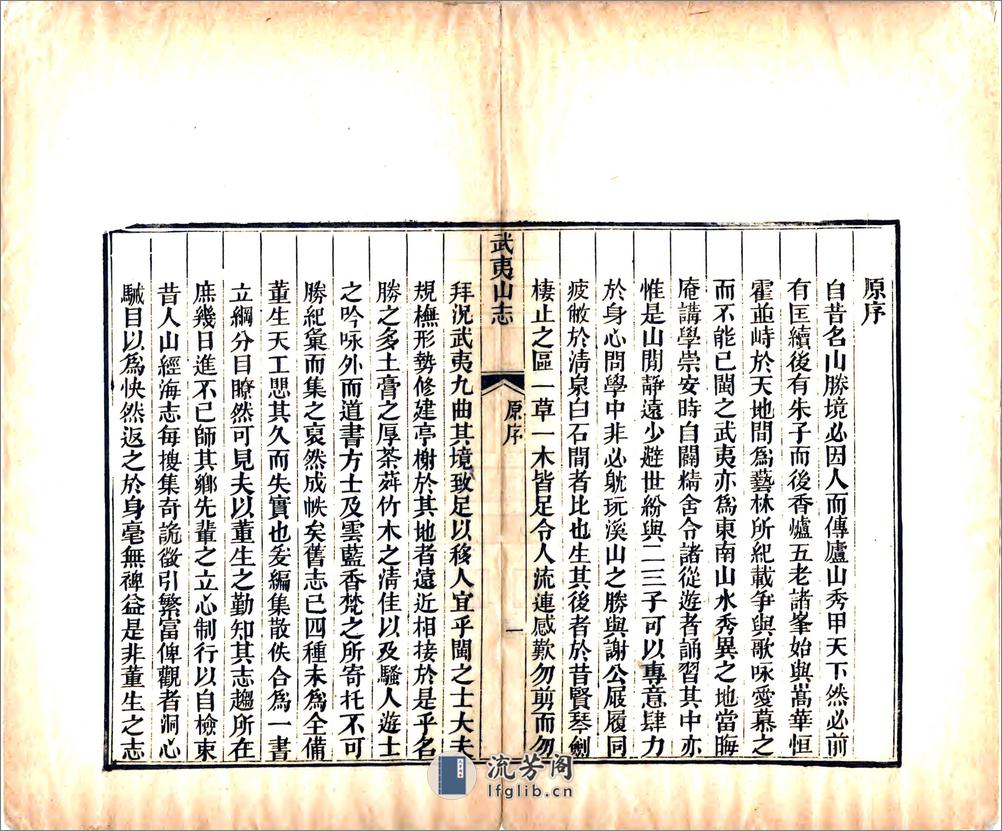 原序
自昔名山勝境必因人而傳廬山秀甲天下然必前
有匡續後有朱子而後香爐五老諸峯始與嵩華恒
霍並峙於天地間爲藝林所紀載爭與歌咏愛慕之
而不能已閩之武夷亦爲東南山水秀異之地當晦
庵講學崇安時自闢精舍令諸從遊者誦習其中亦
惟是山閒靜遠少避世紛與二三子可以專意肆力
於身心問學中非必躭玩溪山之勝與謝公屐履同
疲敝於淸泉白石間者比也生其後者於昔賢琴劍
棲止之區一草一木皆足令人流連感歎勿剪而勿
武夷山志
原序
一
拜況武夷九曲其境致足以移人宜乎閩之士大夫
規橅形勢修建亭榭於其地者遠近相接於是乎名
勝之多土膏之厚茶荈竹木之淸佳以及騷人遊士
之吟咏外而道書方士及雲藍香梵之所寄托不可
勝紀彙而集之裒然成帙矣舊志已四種未爲全備
董生天工思其久而失實也爰編集散佚合爲一書
立綱分目瞭然可見夫以董生之勤知其志趨所在
庶幾日進不已師其鄉先輩之立心制行以自檢束
昔人山經海志每摟集奇詭徵引繁富俾觀者洞心
駴目以爲快然返之於身毫無裨益是非董生之志
流芳阁
lfglib.cn